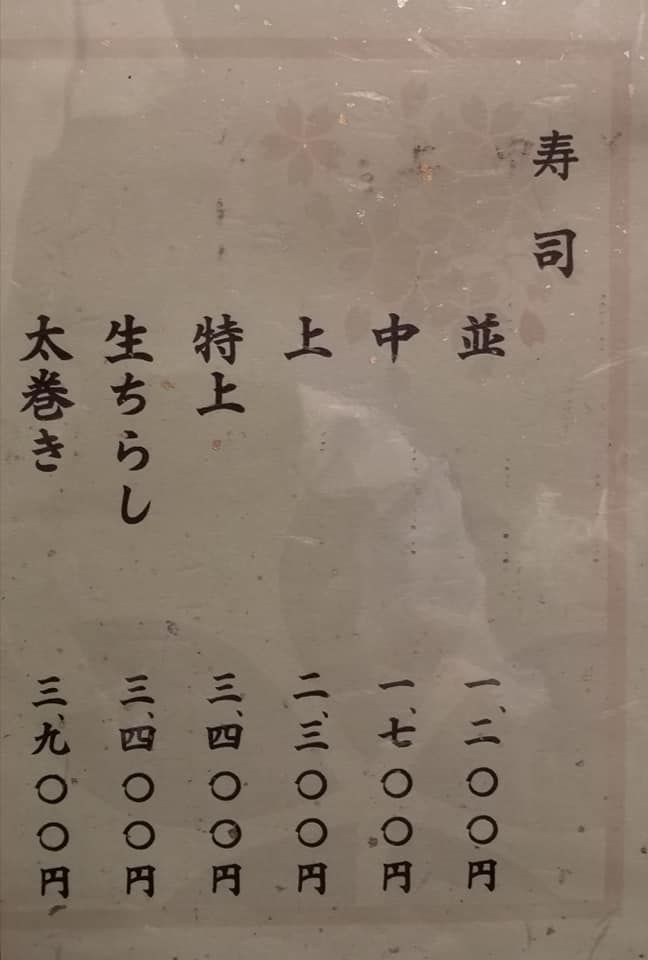 寿司
並 一、二〇〇円
中 一、七〇〇円
上 二、三〇〇円
特上 三、四〇〇円
生ちらし 三、四〇〇円
太巻き 三、九〇〇円